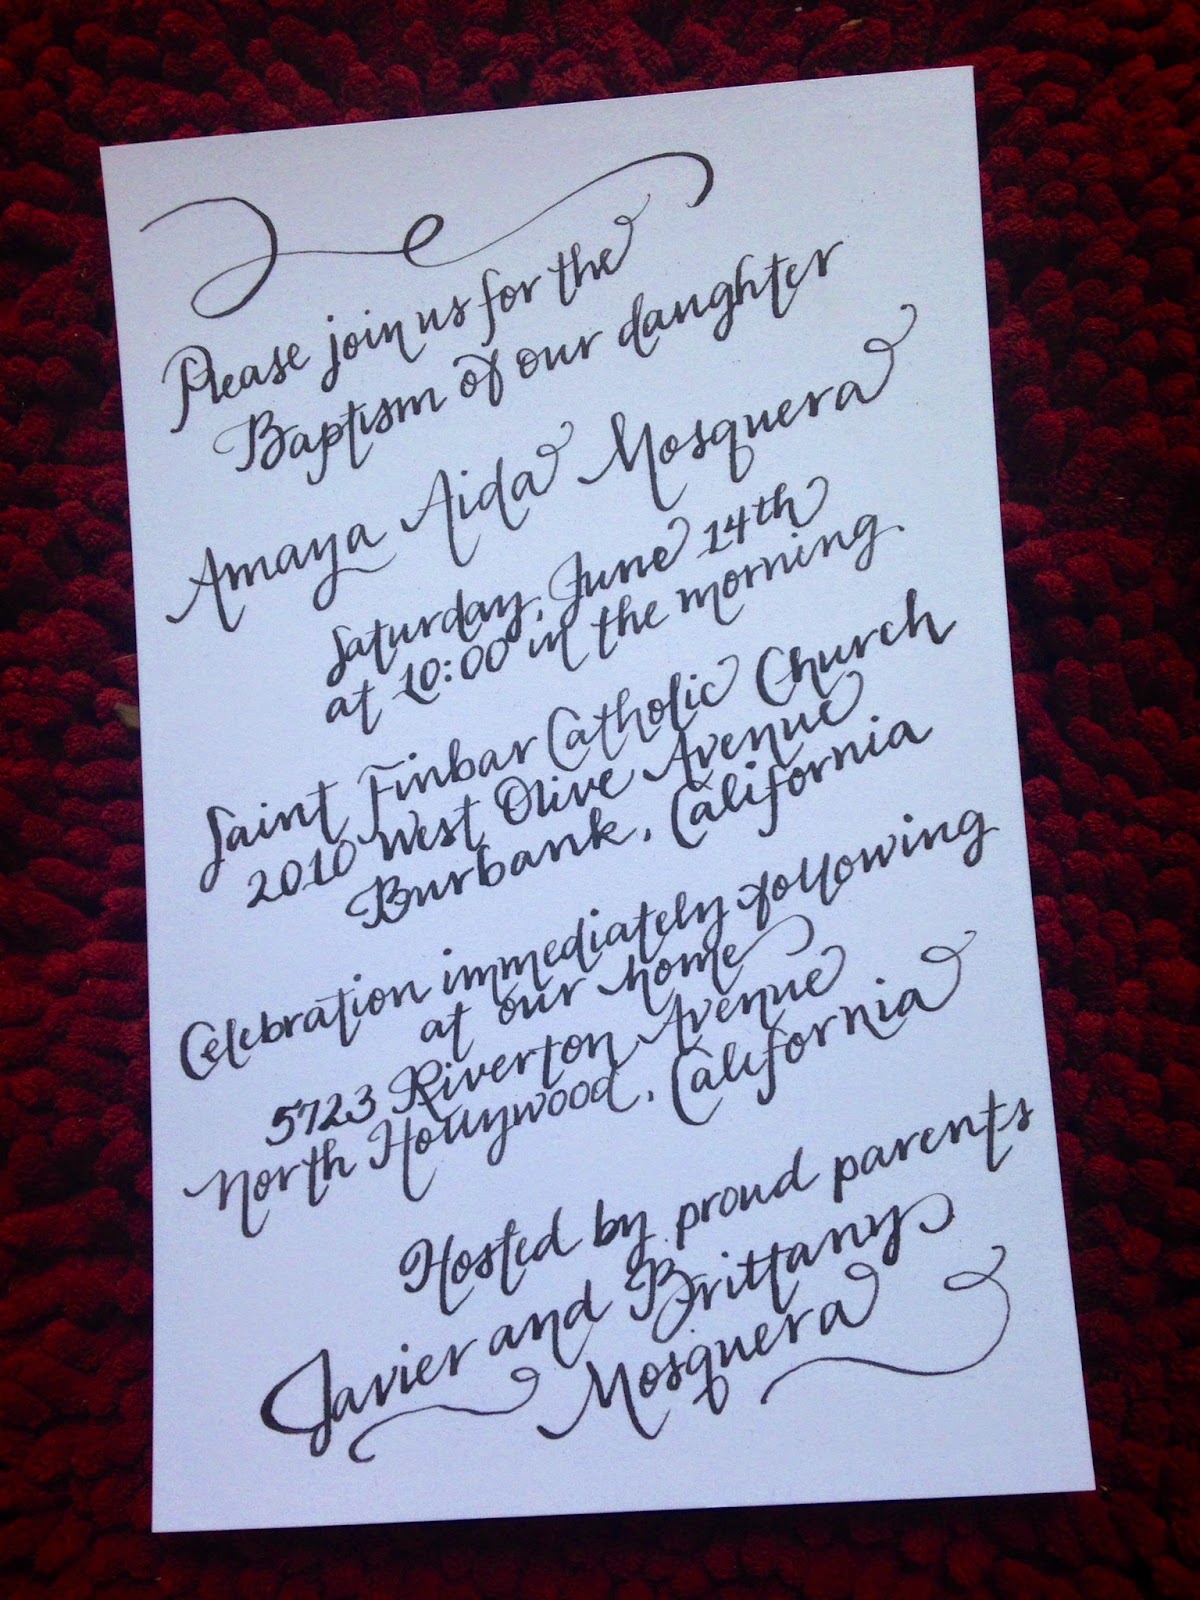 Please join us for the
Baptism of our daughter
Amaya Aida Mosquera
Saturday, June 14th
at 10:00 in the morning.
Saint Finbar Catholic Church
2010 West Olive Avenue
Burbank, California
Celebration immediately following
at our home
5723 Riverton Avenue
North Hollywood, California
Hosted by proud parents
Javier and Brittany
Mosquera